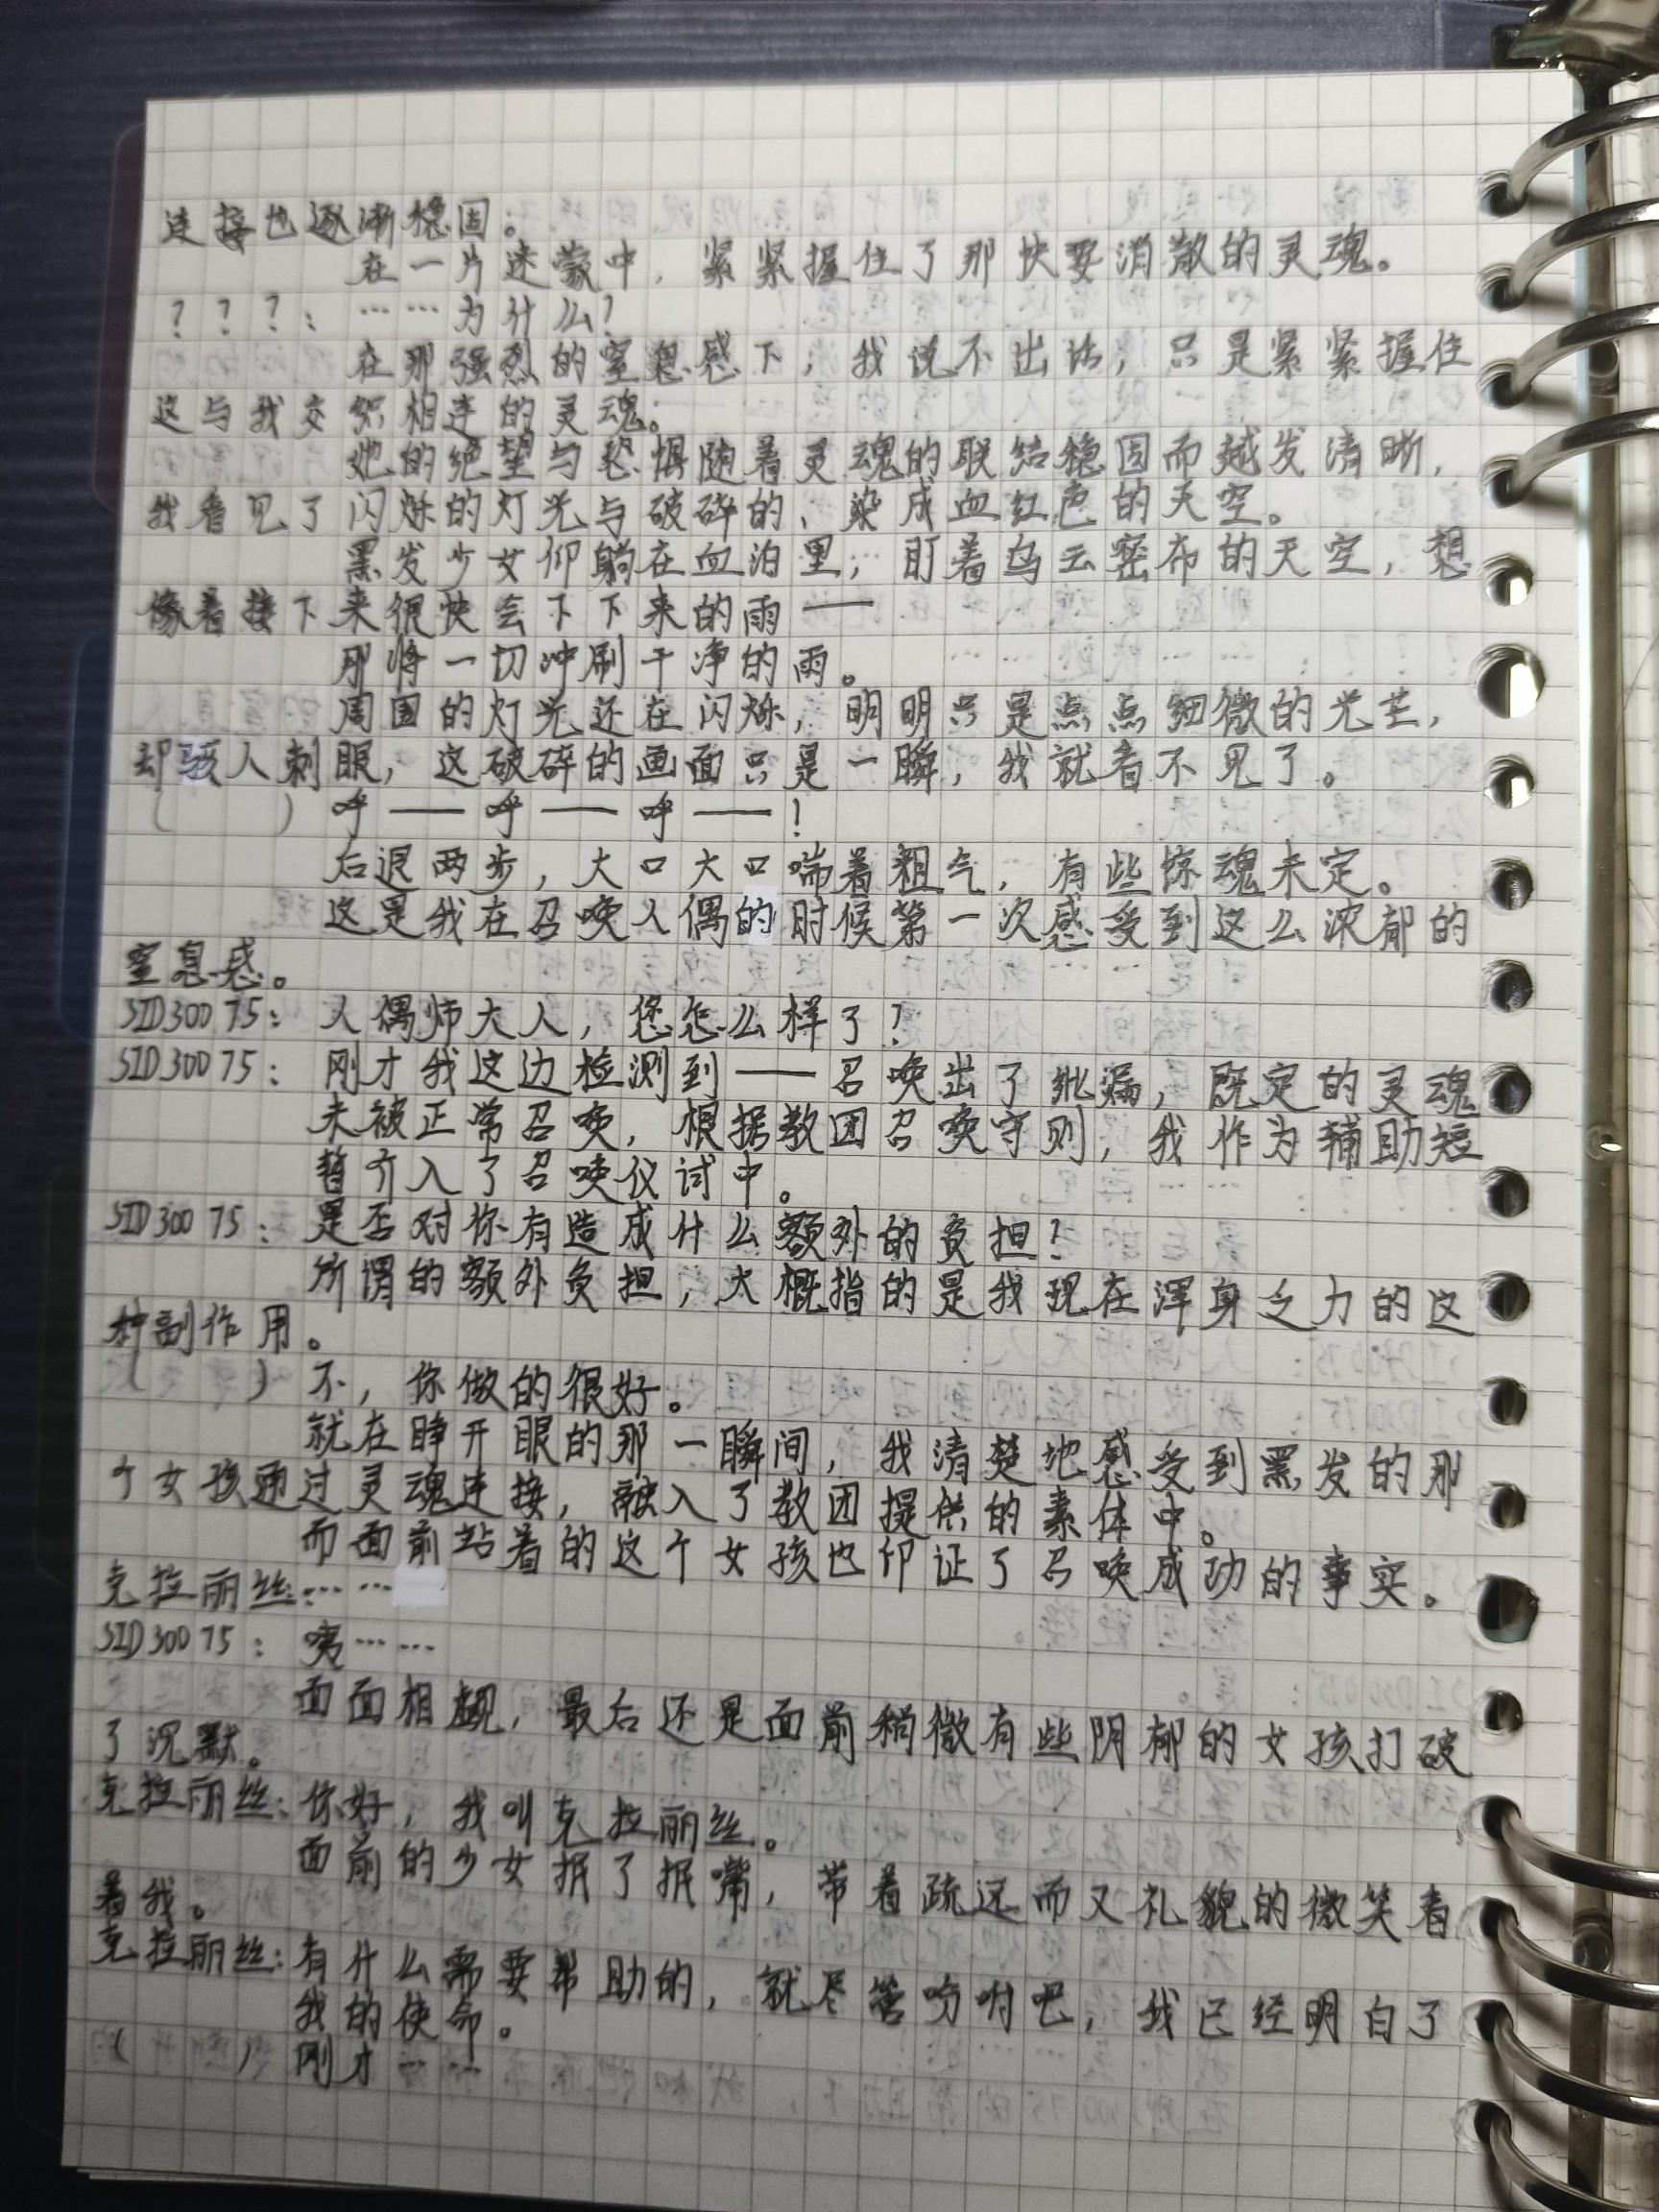 连接也逐渐稳固。
在一片迷蒙中，紧紧握住了那快要消散的灵魂。
？？？：……为什么？
在那强烈的窒息感下，我说不出话，只是紧紧握住
这与我交织相连的灵魂。
她的绝望与恐惧随着灵魂的联结稳固而越发清晰，
我看见了闪烁的灯光与破碎的、染成血红色的天空。
黑发少女仰躺在血泊里，盯着乌云密布的天空，想
像着接下来很快会下下来的雨——
那将一切冲刷干净的雨。
周围的灯光还在闪烁，明明只是点点细微的光芒，
却骇人刺眼，这破碎的画面只是一瞬，我就看不见了。
（　　）呼——呼——呼——！
后退两步，大口大口喘着粗气，有些惊魂未定。
这是我在召唤人偶的时候第一次感受到这么浓郁的
窒息感。
SID30075：人偶师大人，您怎么样了？
SID30075：刚才我这边检测到——召唤出了纰漏，既定的灵魂
未被正常召唤，根据教团召唤守则，我作为辅助短
暂介入了召唤仪试中。
SID30075：是否对你有造成什么额外的负担？
所谓的额外负担，大概指的是我现在浑身乏力的这
种副作用。
（　　）不，你做的很好。
就在睁开眼的那一瞬间，我清楚地感受到黑发的那
个女孩通过灵魂连接，融入了教团提供的素体中。
而面前站着的这个女孩也印证了召唤成功的事实。
克拉丽丝：……
SID30075：咦……
面面相觑，最后还是面前稍微有些阴郁的女孩打破
了沉默。
克拉丽丝：你好，我叫克拉丽丝。
面前的少女抿了抿嘴，带着疏远而又礼貌的微笑看
着我。
克拉丽丝：有什么需要帮助的，就尽管吩咐吧，我已经明白了
我的使命。
（　　）刚才……